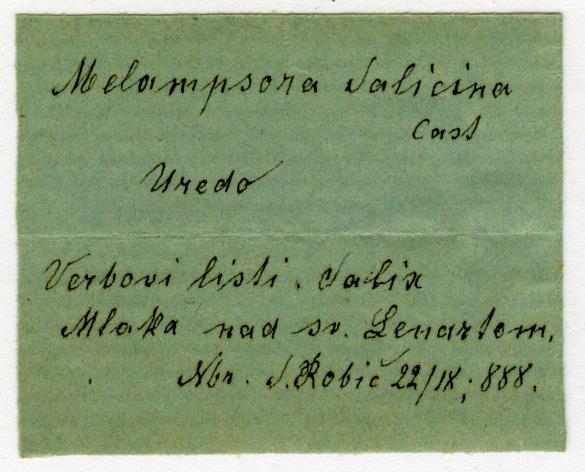 Melampsora Salicina
Cast
Uredo
Verbovi listi. Salix
Mlaka nad sv. Lenartom.
Nbr. S. Robič 22/IX; 888.